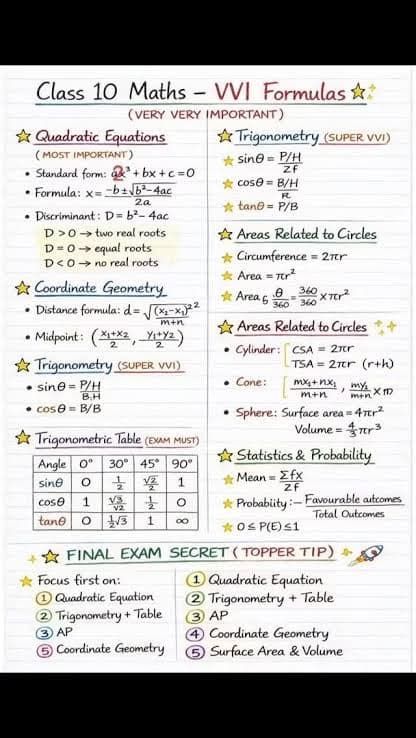 Class 10 Maths – VVI Formulas
(VERY VERY IMPORTANT)
Quadratic Equations
(MOST IMPORTANT)
• Standard form: ax² + bx + c = 0
• Formula: x = -b ± √b²-4ac / 2a
• Discriminant: D = b² - 4ac
D > 0 → two real roots
D = 0 → equal roots
D < 0 → no real roots
Coordinate Geometry
• Distance formula: d = √(x₂-x₁)²² / m+n
• Midpoint: (x₁+x₂ / 2, y₁+y₂ / 2)
Trigonometry (SUPER VVI)
• sinθ = P/H / B.H
• cosθ = B/B
Trigonometric Table (EXAM MUST)
Angle 0° 30° 45° 90°
sinθ 0 1/2 √2/2 1
cosθ 1 √3/√2 1/2 0
tanθ 0 1/2√3 1 ∞
Trigonometry (SUPER VVI)
sinθ = P/H / ZF
cosθ = B/H / R
tanθ = P/B
Areas Related to Circles
Circumference = 2πr
Area = πr²
Area 6 θ/360 = 360/360 × πr²
Areas Related to Circles
• Cylinder: CSA = 2πr
TSA = 2πr (r+h)
• Cone: [mx₁+nx₁ / m+n, my₂ / m+n
• Sphere: Surface area = 4πr²
Volume = 4/3 πr³
Statistics & Probability
Mean = Σfx / ΣF
Probability:– Favourable outcomes / Total Outcomes
0 ≤ P(E) ≤ 1
FINAL EXAM SECRET (TOPPER TIP)
Focus first on:
1 Quadratic Equation
2 Trigonometry + Table
3 AP
5 Coordinate Geometry
1 Quadratic Equation
2 Trigonometry + Table
3 AP
4 Coordinate Geometry
5 Surface Area & Volume